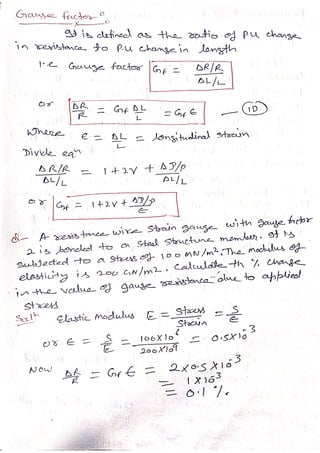 Gauge Factor:
It is defined as the ratio of PU change
in resistance to P.U change in length
i-e Gauge factor Gf = ΔR/R / ΔL/L
or ΔR/R = Gf ΔL/L = Gf ε — (10)
Where ε = ΔL/L = longitudinal strain
Divide eqn
ΔR/R / ΔL/L = 1+2ν + Δρ/ρ / ΔL/L
or Gf = 1+2ν + Δρ/ρ / ε
Q- A resistance wire strain gauge with gauge factor
2 is bonded to a steel structure member. It is
subjected to a stress of 100 MN/m². The modulus of
elasticity is 200 GN/m². Calculate th % change
in the value of gauge resistance due to applied
stress
Solⁿ Elastic modulus E = Stress/Strain = S/ε
or ε = S/E = 100×10⁶/200×10⁹ = 0.5×10⁻³
Now ΔR/R = Gf ε = 2×0.5×10⁻³
= 1×10⁻³
= 0.1 %.